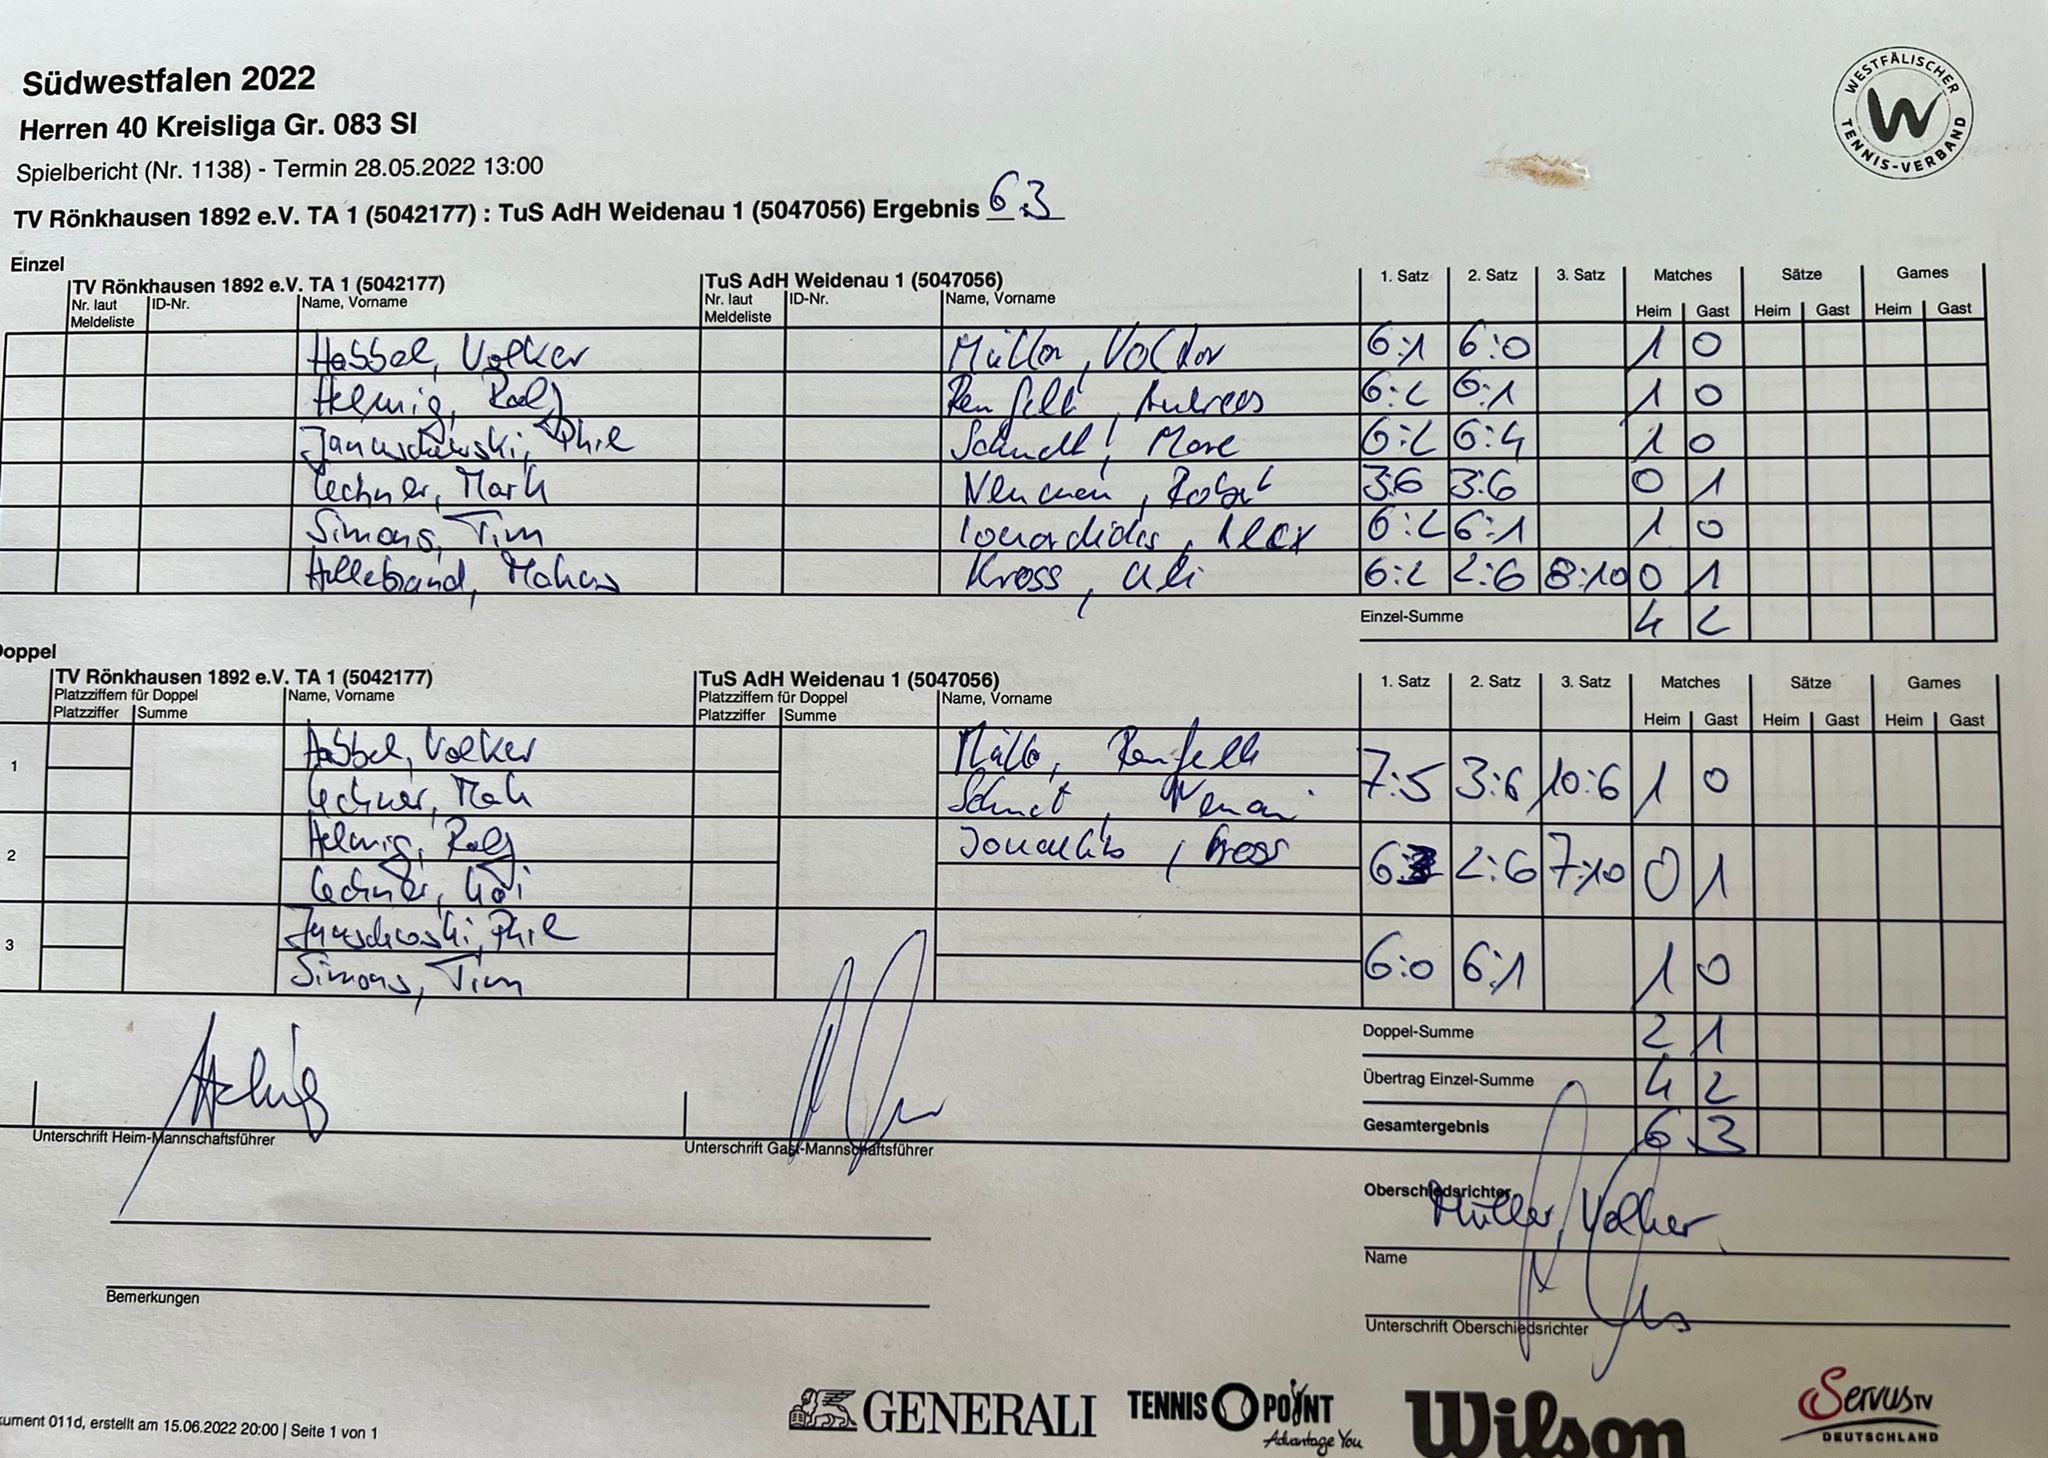 Südwestfalen 2022
Herren 40 Kreisliga Gr. 083 SI
Spielbericht (Nr. 1138) - Termin 28.05.2022 13:00
TV Rönkhausen 1892 e.V. TA 1 (5042177) : TuS AdH Weidenau 1 (5047056) Ergebnis 6:3
WESTFÄLISCHER TENNIS-VERBAND
Einzel
TV Rönkhausen 1892 e.V. TA 1 (5042177) TuS AdH Weidenau 1 (5047056) 1. Satz 2. Satz 3. Satz Matches Sätze Games
Nr. laut Meldeliste ID-Nr. Name, Vorname Nr. laut Meldeliste ID-Nr. Name, Vorname Heim Gast Heim Gast Heim Gast
Habbel, Volker Müller, Volker 6:1 6:0 1 0
Helmig, Ralf Andreas 6:2 6:1 1 0
Januschowski, Phil Schmidt, Marc 6:2 6:4 1 0
Lechner, Mark Neumann, Robert 3:6 3:6 0 1
Simons, Tim Alex 6:2 6:1 1 0
Hillebrand, Markus Kross, Uli 6:2 2:6 8:10 0 1
Einzel-Summe 4 2
Doppel
TV Rönkhausen 1892 e.V. TA 1 (5042177) TuS AdH Weidenau 1 (5047056) 1. Satz 2. Satz 3. Satz Matches Sätze Games
Platzziffern für Doppel Name, Vorname Platzziffern für Doppel Name, Vorname
Platzziffer Summe Platzziffer Summe Heim Gast Heim Gast Heim Gast
Habbel, Volker
1 7:5 3:6 10:6 1 0
Lechner, Mark
Helmig, Ralf Kross
2 6:3 2:6 7:10 0 1
Lechner,
Januschowski, Phil
3 6:0 6:1 1 0
Simons, Tim
Doppel-Summe 2 1
Übertrag Einzel-Summe 4 2
Gesamtergebnis 6 3
Helmig
Unterschrift Heim-Mannschaftsführer Unterschrift Gast-Mannschaftsführer
Oberschiedsrichter
Müller, Volker
Name
Bemerkungen
Unterschrift Oberschiedsrichter
kument 011d, erstellt am 15.06.2022 20:00 | Seite 1 von 1
GENERALI
TENNIS POINT
Advantage You
Wilson
ServusTV
DEUTSCHLAND